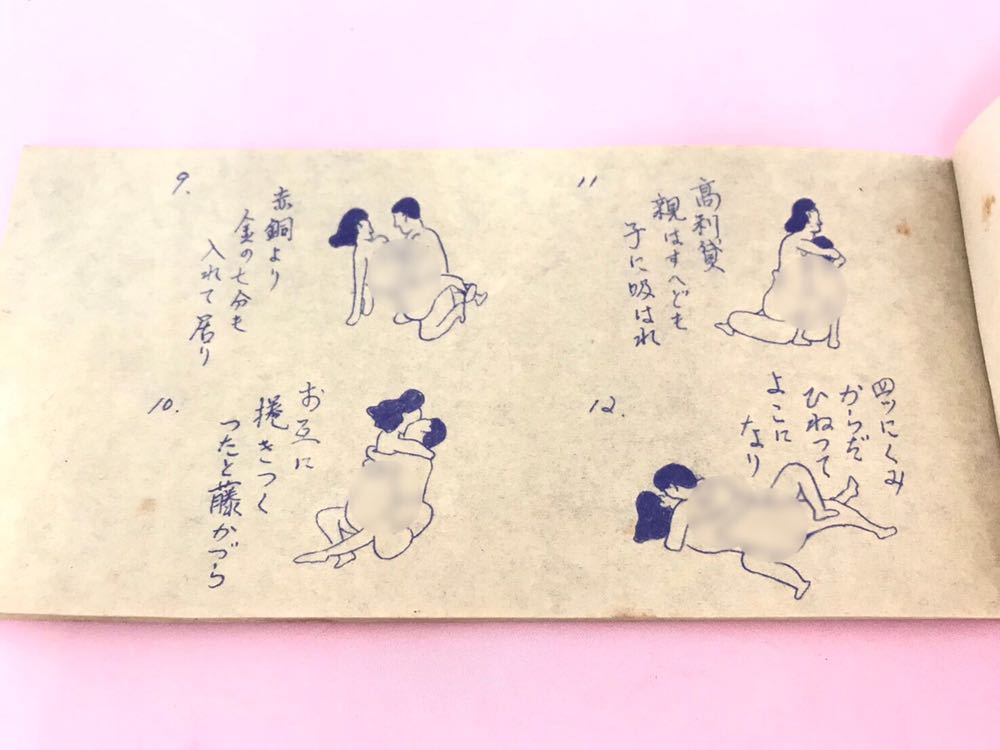 9.
赤銅より
金の七分も
入れて居り
10.
お互に
捲きつく
つたと藤かづら
11
高利貸
親はすへども
子に吸はれ
12.
四ツにくみ
からだ
ひねつて
よこに
なり